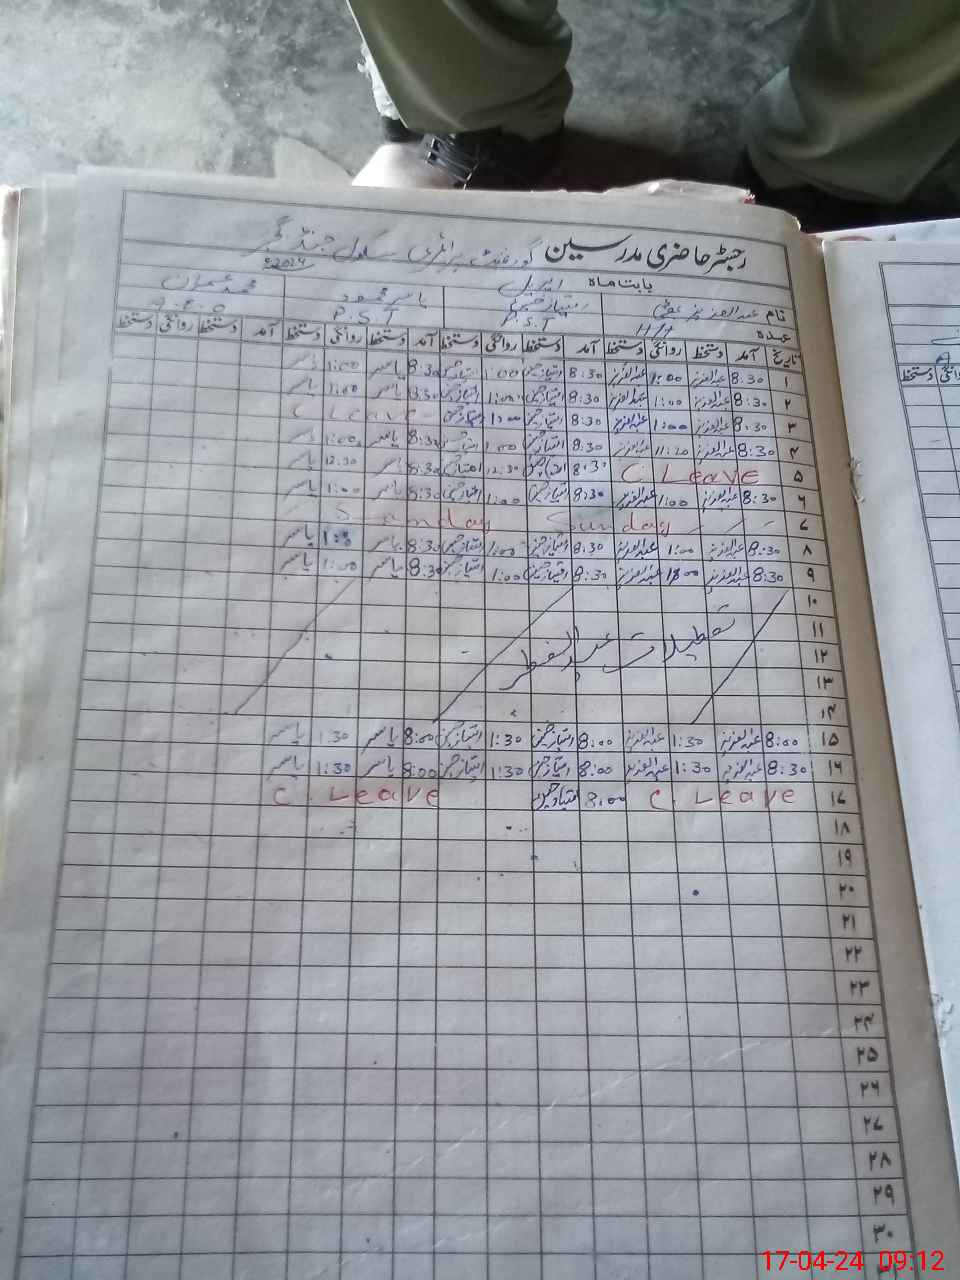 رجسٹر حاضری مدرسین گورنمنٹ پرائمری سکول
بابت ماہ اپریل 2024ء
نام عبدالعزیز یاسر محمود محمد عمران
عہدہ P.S.T P.S.T
تاریخ آمد دستخط روانگی دستخط آمد دستخط روانگی دستخط آمد دستخط روانگی دستخط آمد دستخط روانگی دستخط
۱ 8:30 عبدالعزیز 1:00 عبدالعزیز 8:30 امتیاز حسین 1:00 امتیاز حسین 8:30 یاسر 1:00 یاسر
۲ 8:30 عبدالعزیز 1:00 عبدالعزیز 8:30 امتیاز حسین 1:00 امتیاز حسین 8:30 یاسر 1:00 یاسر
۳ 8:30 عبدالعزیز 1:00 عبدالعزیز 8:30 امتیاز حسین 1:00 امتیاز حسین C Leave
۴ 8:30 عبدالعزیز 11:20 عبدالعزیز 8:30 امتیاز حسین 1:00 امتیاز حسین 8:30 یاسر 1:00 یاسر
۵ C Leave 8:30 امتیاز حسین 12:30 امتیاز حسین 8:30 یاسر 12:30 یاسر
۶ 8:30 عبدالعزیز 1:00 عبدالعزیز 8:30 امتیاز حسین 1:00 امتیاز حسین 8:30 یاسر 1:00 یاسر
۷ Sunday S anday
۸ 8:30 عبدالعزیز 1:00 عبدالعزیز 8:30 امتیاز حسین 1:00 امتیاز حسین 8:30 یاسر 1:00 یاسر
۹ 8:30 عبدالعزیز 1:00 عبدالعزیز 8:30 امتیاز حسین 1:00 امتیاز حسین 8:30 یاسر 1:00 یاسر
۱۰
۱۱ تعطیلات عیدالفطر
۱۲
۱۳
۱۴
۱۵ 8:00 عبدالعزیز 1:30 عبدالعزیز 8:00 امتیاز حسین 1:30 امتیاز حسین 8:00 یاسر 1:30 یاسر
۱۶ 8:30 عبدالعزیز 1:30 عبدالعزیز 8:00 امتیاز حسین 1:30 امتیاز حسین 8:00 یاسر 1:30 یاسر
۱۷ C. Leave 8:00 امتیاز حسین C. Leave
۱۸
۱۹
۲۰
۲۱
۲۲
۲۳
۲۴
۲۵
۲۶
۲۷
۲۸
۲۹
۳۰
17-04-24 09:12